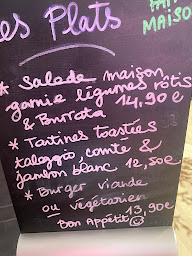 es Plats
FAIT
MAISO
* Salade maison,
garnie légumes rôtis
& Burrata 14,90 €
* Tartines toastées
taleggio, comté &
jambon blanc 12,50€
* Burger viande
ou végétarien
13,90€
Bon Appétit ☺